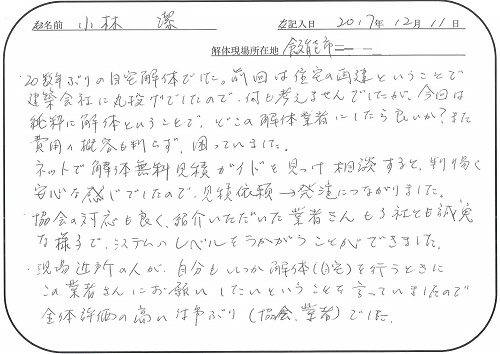 お名前 小林 潔 ご記入日 2017年12月11日
解体現場所在地 飯能市
・20数年ぶりの自宅解体でした。前回は住宅の再建ということで
建築会社に丸投げでしたので、何も考えませんでしたが、今回は
純粋に解体ということで、どこの解体業者にしたら良いか?また
費用の概容も判らず、困っていました。
ネットで解体無料見積ガイドを見つけ相談すると、判り易く
安心な感じでしたので、見積依頼→発注につながりました。
・協会の対応も良く、紹介いただいた業者さんも3社とも誠実
な様子で、システムのレベルをうかがうことができました。
・現場近所の人が、自分もいつか解体(自宅)を行うときに
この業者さんにお願いしたいということを言っていましたので
全体評価の高い仕事ぶり(協会、業者)でした。